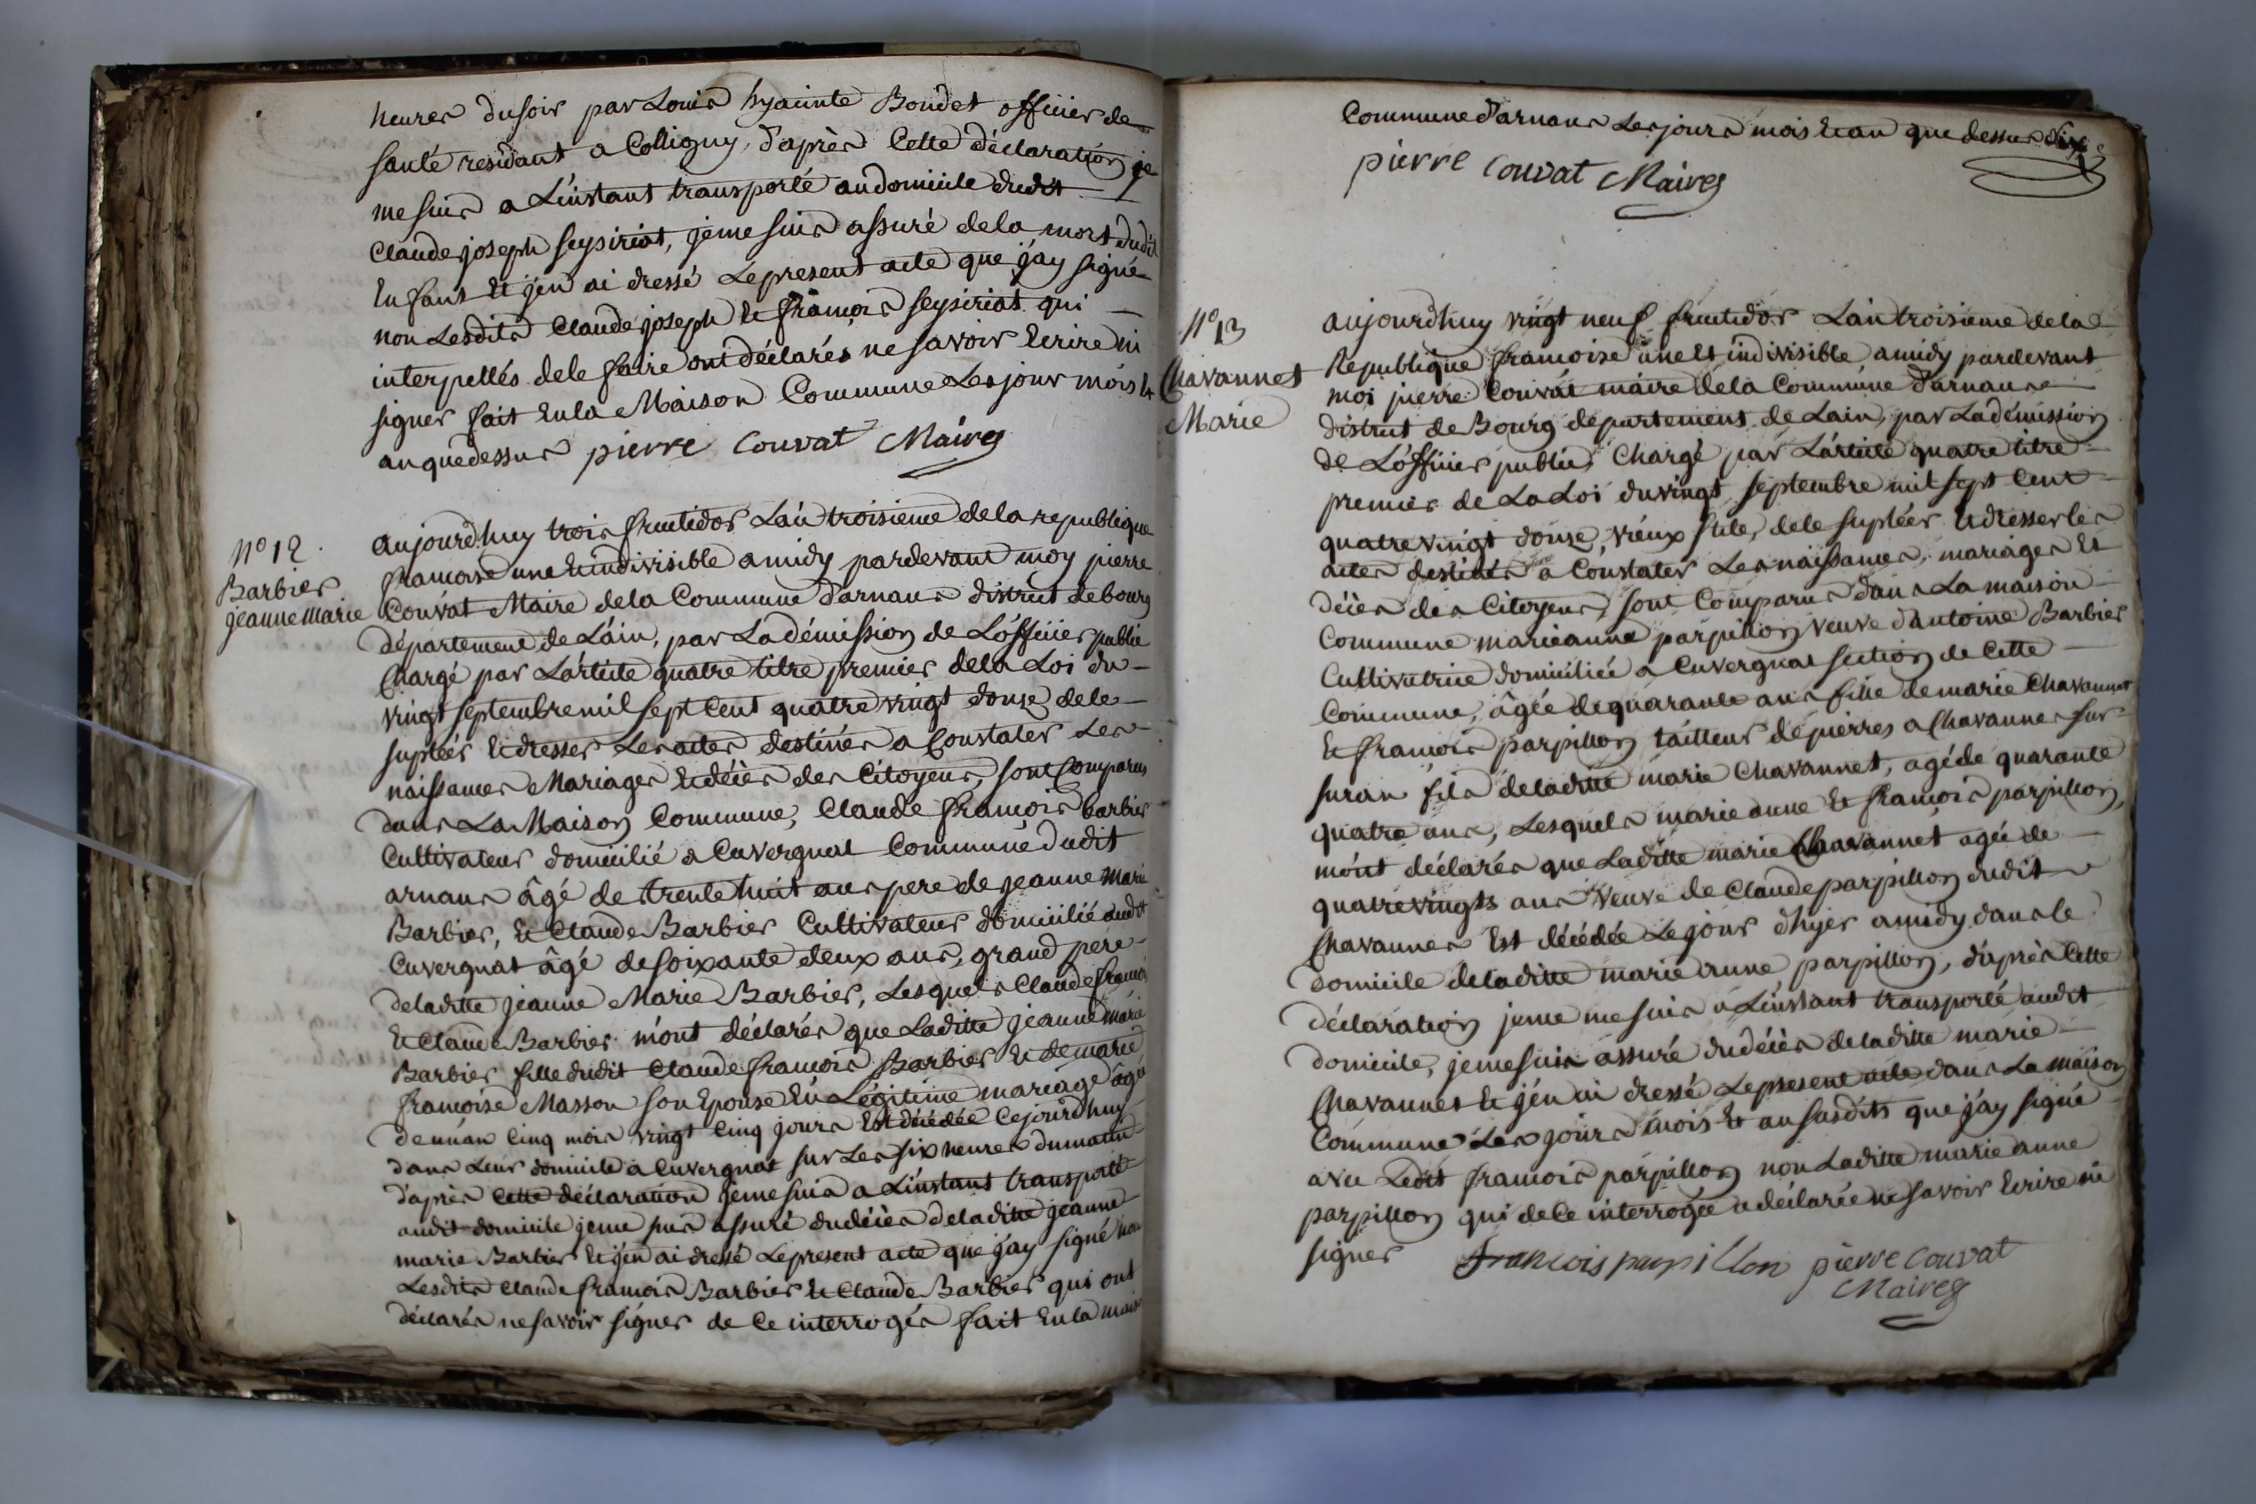 heures du soir par Louis hyacinte Boudet officier de
santé residant a Colligny, d'après Cette déclaration je
me suis a L'instant transporté au domicile dudit
Claude joseph seysiriat, je me suis assuré de la mort dudit
Enfant Et j'en ai dressé Le present acte que j'ay signé
non Lesdits Claude joseph Et françois seysiriat qui
interpellés de le faire ont déclarés ne savoir Ecrire ni
signer fait En la Maison Commune Les jour mois Et
an que dessus pierre Couvat Maire
N° 12
Barbier
jeanne marie
aujourd'huy trois fructidor L'an troisieme de la republique
françoise une Et indivisible a midy pardevant moy pierre
Couvat Maire de la Commune d'arnans district de bourg
département de L'ain, par La démission de L'officier public
Chargé par L'article quatre titre premier de la Loi du
vingt septembre mil sept Cent quatre vingt douze de le
supléer Et dresser Les actes destinés a Constater Les
naissances Mariages Et décès des Citoyens, sont Comparus
dans La Maison Commune, Claude françois barbier
Cultivateur domicilié a Cuvergnat Commune dudit
arnans âgé de trente huit ans pere de jeanne Marie
Barbier, Et Claude Barbier Cultivateur domicilié audit
Cuvergnat âgé de soixante deux ans, grand père
de laditte jeanne Marie Barbier, Lesquels Claude françois
Et Claude Barbier m'ont déclarés que Laditte jeanne marie
Barbier fille dudit Claude françois Barbier Et de marie
françoise Masson son Epouse En Légitime mariage âgée
de un an Cinq mois vingt Cinq jours Est décédée Cejourd'huy
dans Leur domicile a Cuvergnat sur Les six heures du matin
d'après Cette déclaration je me suis a L'instant transporté
audit domicile je me suis assuré du décès de laditte jeanne
marie Barbier Et j'en ai dressé Le present acte que j'ay signé non
Lesdits Claude françois Barbier Et Claude Barbier qui ont
déclarés ne savoir signer de Ce interrogés fait En la maison
Commune d'arnans Les jours mois Et an que dessus
pierre Couvat Maire
N° 13
Chavannet
Marie
aujourd'huy vingt neuf fructidor L'an troisieme de la
Republique françoise une Et indivisible a midy pardevant
moi pierre Couvat maire de la Commune d'arnans
district de Bourg département de Lain, par La démission
de L'officier public, Chargé par L'article quatre titre
premier de La Loi du vingt septembre mil sept Cent
quatre vingt douze, vieux stile, de le supléer Et dresser les
actes destinés a Constater Les naissances, mariages Et
décès des Citoyens, sont Comparus dans La maison
Commune marieanne parpillon veuve d'antoine Barbier
Cultivatrice domiciliée a Cuvergnat section de Cette
Commune, âgée de quarante ans fille de marie Chavannet
Et françois parpillon tailleur de pierres a Chavannes sur
suran fils de laditte marie Chavannet, agé de quarante
quatre ans, Lesquels marie anne Et françois parpillon,
m'ont déclarés que Laditte marie Chavannet agée de
quatre vingts ans veuve de Claude parpillon dudit
Chavannes Est décédée Le jour d'hyer a midy dans le
domicile de laditte marie anne parpillon, d'après Cette
déclaration je me me suis a L'instant transporté audit
domicile, je me suis assuré du décès de laditte marie
Chavannet Et j'en ai dressé Le present acte dans La maison
Commune Les jours mois Et an susdits que j'ay signé
avec Ledit françois parpillon non Laditte marie anne
parpillon qui de Ce interrogée a déclarée ne savoir Ecrire ni
signer francois parpillon pierre Couvat
Maire